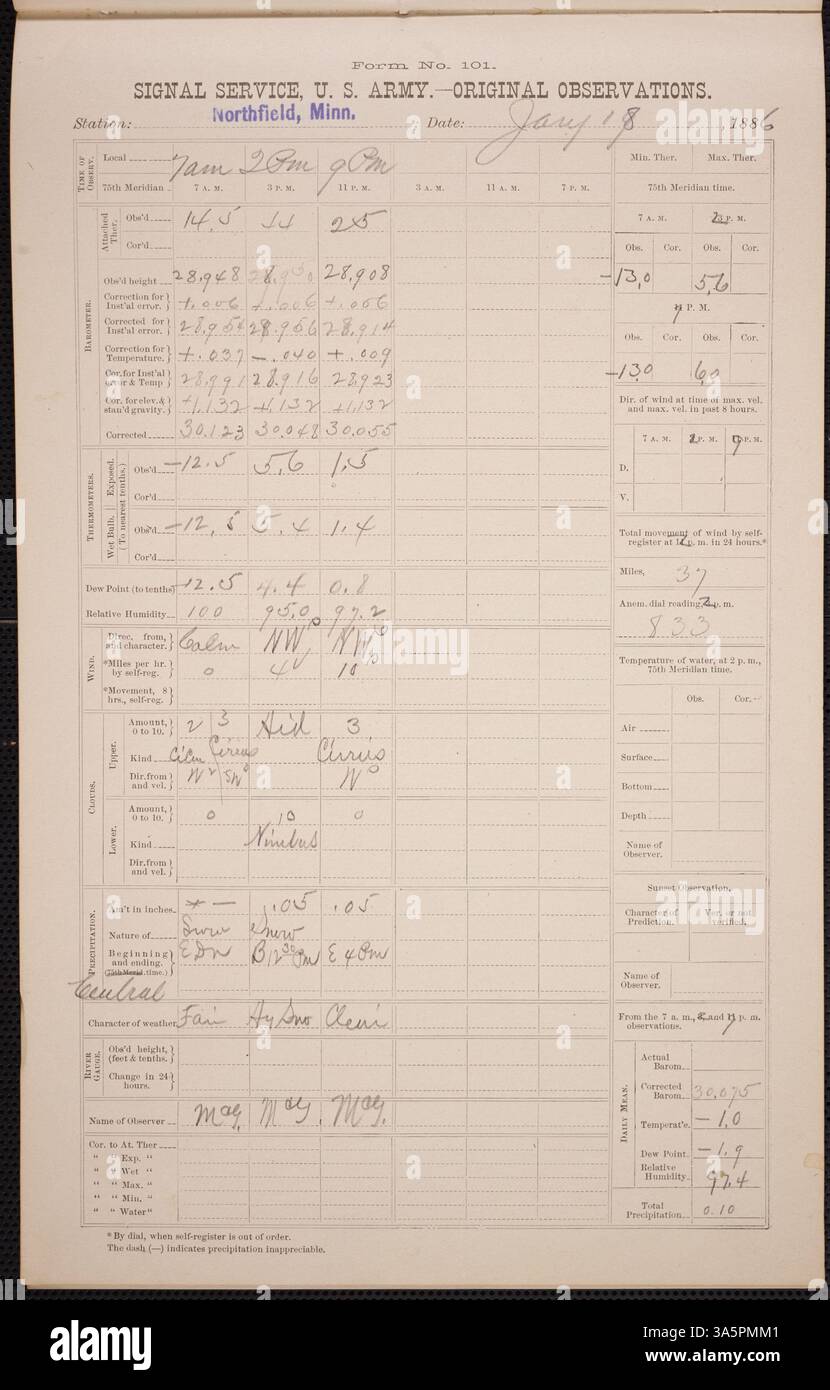 Form No. 101.
SIGNAL SERVICE, U. S. ARMY.—ORIGINAL OBSERVATIONS.
Station: Northfield, Minn. Date: Jany 18, 1886
TIME OF OBSERV. Local 7am 2 Pm 9 Pm Min. Ther. Max. Ther.
75th Meridian 7 A. M. 3 P. M. 11 P. M. 3 A. M. 11 A. M. 7 P. M. 75th Meridian time.
7 A. M. P. M.
Attached Ther. Obs'd 14.5 44 25
Cor'd Obs. Cor. Obs. Cor.
BAROMETER. Obs'd height 28.948 28.950 28.908 -13.0 5.6
Correction for Inst'al error. +.006 +.006 +.006 P. M.
Corrected for Inst'al error. 28.954 28.956 28.914 Obs. Cor. Obs. Cor.
Correction for Temperature. +.037 -.040 +.009
Cor. for Inst'al error & Temp 28.991 28.916 28.923 -13.0 6.0
Cor. for elev. & stan'd gravity. +1.132 +1.132 +1.132 Dir. of wind at time of max. vel. and max. vel. in past 8 hours.
Corrected 30.123 30.048 30.055
7 A. M. P. M. P. M.
THERMOMETERS. (To nearest tenths.) Exposed. Obs'd -12.5 5.6 1.5 D.
Cor'd V.
Wet Bulb. Obs'd -12.5 5.4 1.4 Total movement of wind by self-register at p. m. in 24 hours.*
Cor'd
Dew Point (to tenths) -12.5 4.4 0.8 Miles, 37
Relative Humidity 100 95.0 97.2 Anem. dial reading, 2 p. m.
833
WIND. Direc. from, and character. Calm NW NW
*Miles per hr. by self-reg. 0 4 10 Temperature of water, at 2 p. m., 75th Meridian time.
*Movement, 8 hrs., self-reg.
Obs. Cor.
CLOUDS. Upper. Amount, 0 to 10. 2 3 Hid 3 Air
Kind CiCm Cirrus Cirrus Surface
Dir. from and vel. W SW W Bottom
Lower. Amount, 0 to 10. 0 10 0 Depth
Kind Nimbus Name of Observer.
Dir. from and vel.
Sunset Observation.
PRECIPITATION. Am't in inches. * — .05 .05 Character of Prediction. Ver. or not verified.
Nature of Snow Snow
Beginning and ending. (75th Merid. time.) E Dn B 12 30 Pm E 4 Pm
Central Name of Observer.
Character of weather Fair Hy Sno Clear From the 7 a. m., and p. m. observations.
RIVER GAUGE. Obs'd height, (feet & tenths.) DAILY MEAN. Actual Barom.
Change in 24 hours. Corrected Barom. 30.075
Name of Observer McG. McG. McG. Temperat'e. -1.0
Cor. to At. Ther Dew Point -1.9
" " Exp. " Relative Humidity. 97.4
" " Wet "
" " Max. "
" " Min. " Total Precipitation. 0.10
" " Water "
*By dial, when self-register is out of order.
The dash (—) indicates precipitation inappreciable.
alamy
Image ID: 3A5PMM1
www.alamy.com